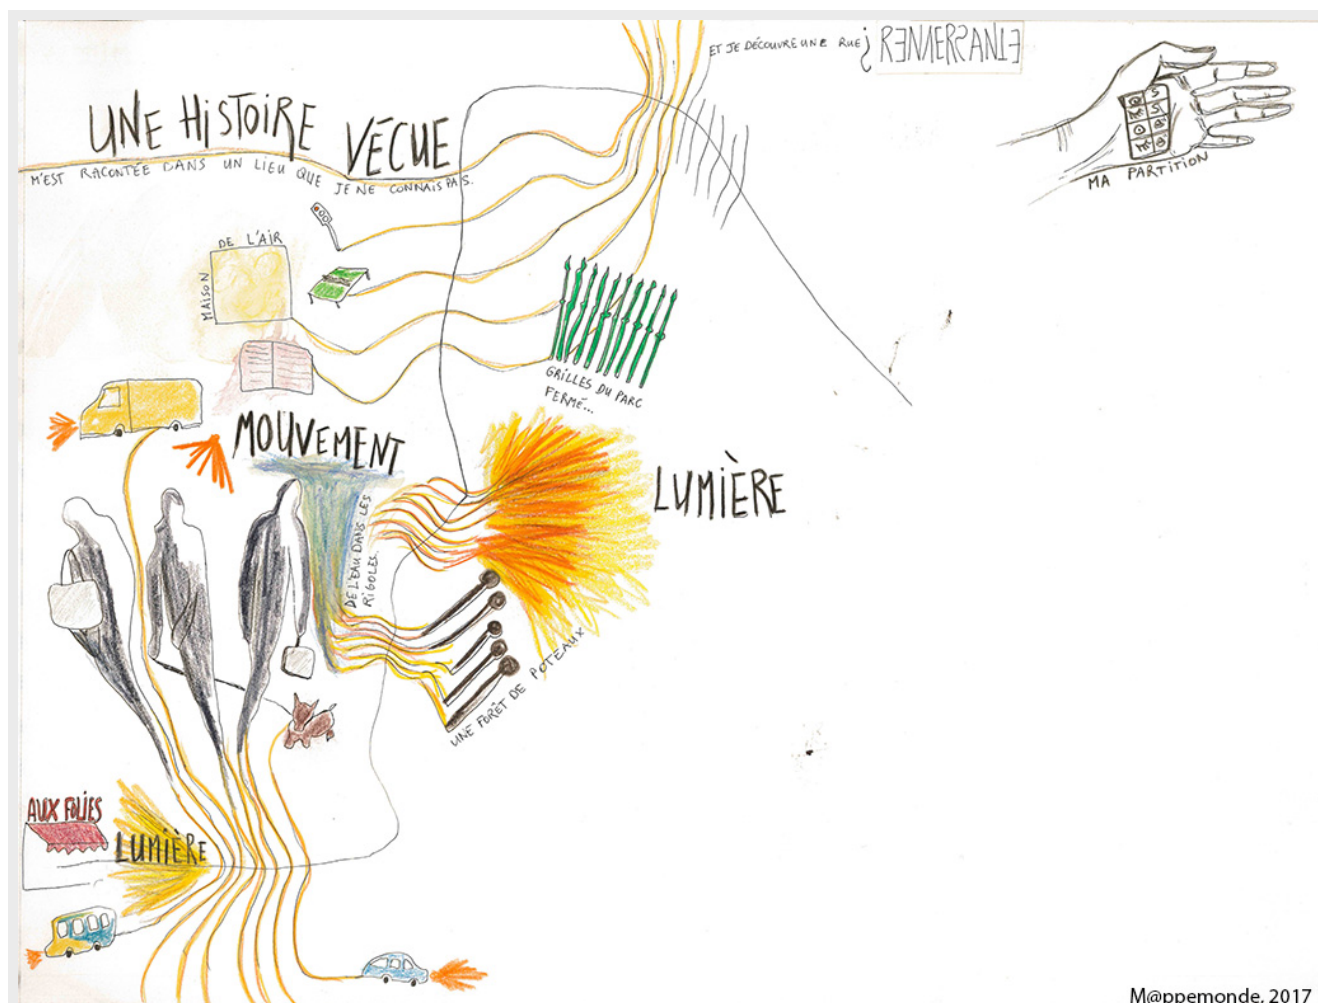 ET JE DÉCOUVRE UNE RUE RENVERSANTE
UNE HISTOIRE VÉCUE
M'EST RACONTÉE DANS UN LIEU QUE JE NE CONNAIS PAS.
MA PARTITION
DE L'AIR
MAISON
GRILLES DU PARC
FERMÉ...
MOUVEMENT
LUMIÈRE
DE L'EAU DANS LES
RIGOLES.
UNE FORÊT DE POTEAUX
AUX FOLIES
LUMIÈRE
M@ppemonde, 2017